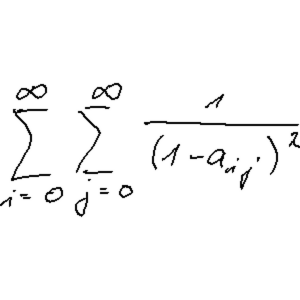 \sum_{i=0}^{\infty} \sum_{j=0}^{\infty} \frac{1}{(1-a_{ij})^2}